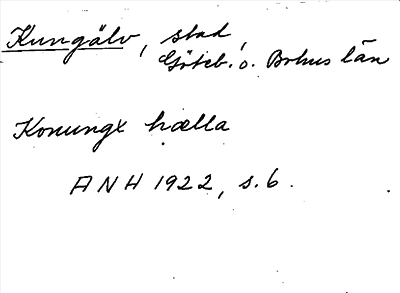 Kungälv, stad,
Göteb. o. Bohus län
Konungx hælla
ANH 1922, s. 6.